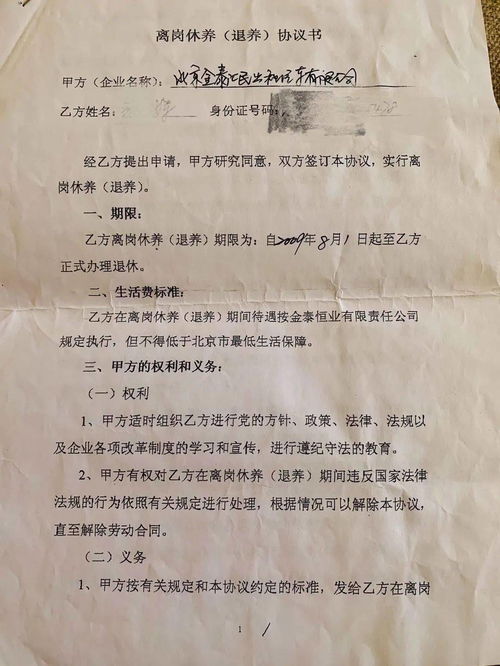 离岗休养（退养）协议书
甲方（企业名称）：北京金泰 出租汽车有限公司
乙方姓名： 身份证号码：
经乙方提出申请，甲方研究同意，双方签订本协议，实行离
岗休养（退养）。
一、期限：
乙方离岗休养（退养）期限为：自2009年8月1日起至乙方
正式办理退休。
二、生活费标准：
乙方在离岗休养（退养）期间待遇按金泰恒业有限责任公司
规定执行，但不得低于北京市最低生活保障。
三、甲方的权利和义务：
（一）权利
1、甲方适时组织乙方进行党的方针、政策、法律、法规以
及企业各项改革制度的学习和宣传，进行遵纪守法的教育。
2、甲方有权对乙方在离岗休养（退养）期间违反国家法律
法规的行为依照有关规定进行处理，根据情况可以解除本协议，
直至解除劳动合同。
（二）义务
1、甲方按有关规定和本协议约定的标准，发给乙方在离岗
1 1